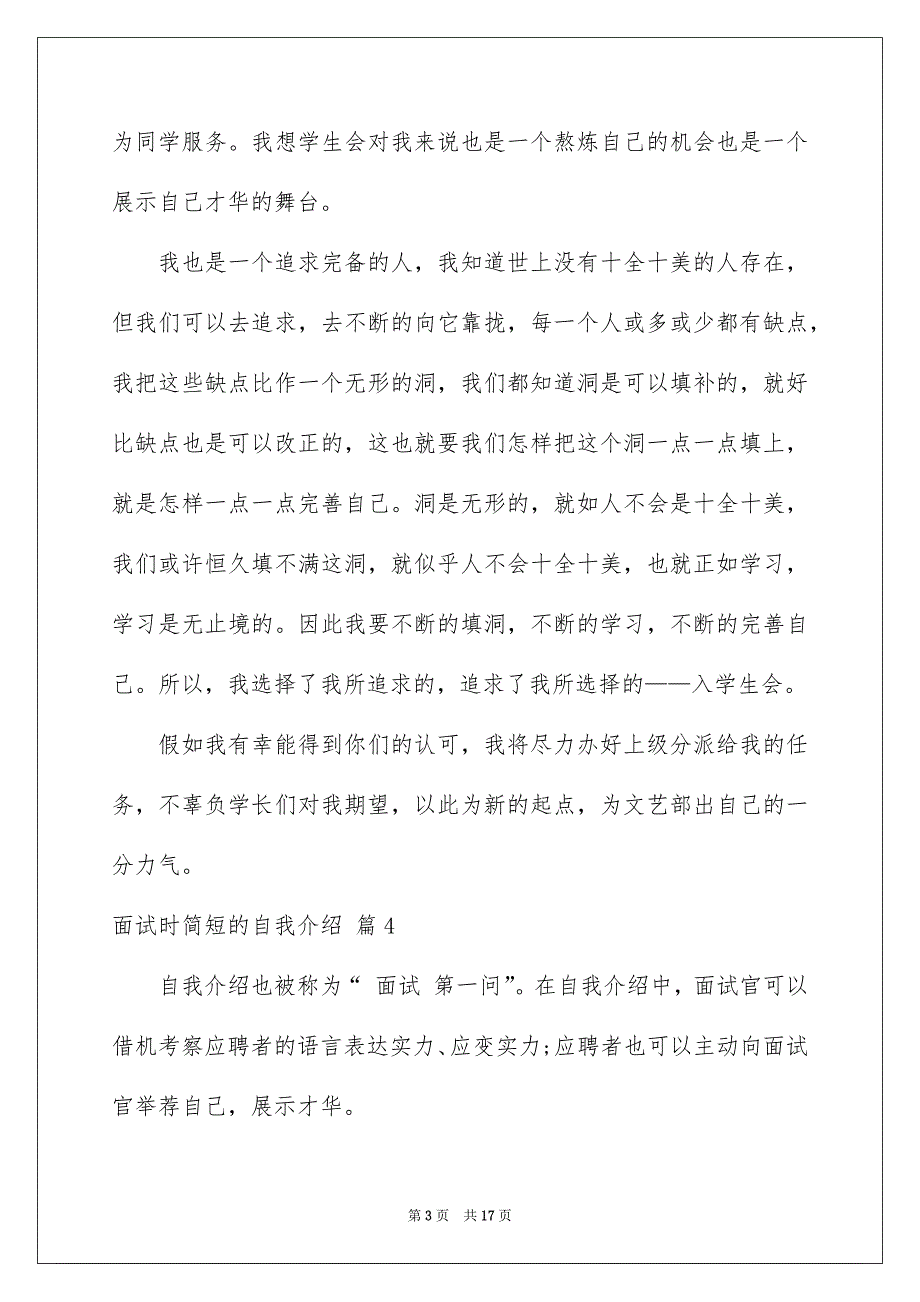 为同学服务。我想学生会对我来说也是一个熬炼自己的机会也是一个
展示自己才华的舞台。
我也是一个追求完备的人，我知道世上没有十全十美的人存在，
但我们可以去追求，去不断的向它靠拢，每一个人或多或少都有缺点，
我把这些缺点比作一个无形的洞，我们都知道洞是可以填补的，就好
比缺点也是可以改正的，这也就要我们怎样把这个洞一点一点填上，
就是怎样一点一点完善自己。洞是无形的，就如人不会是十全十美，
我们或许恒久填不满这洞，就似乎人不会十全十美，也就正如学习，
学习是无止境的。因此我要不断的填洞，不断的学习，不断的完善自
己。所以，我选择了我所追求的，追求了我所选择的——入学生会。
假如我有幸能得到你们的认可，我将尽力办好上级分派给我的任
务，不辜负学长们对我期望，以此为新的起点，为文艺部出自己的一
分力气。
面试时简短的自我介绍 篇4
自我介绍也被称为“ 面试 第一问”。在自我介绍中，面试官可以
借机考察应聘者的语言表达实力、应变实力;应聘者也可以主动向面试
官举荐自己，展示才华。
第 3 页 共 17 页